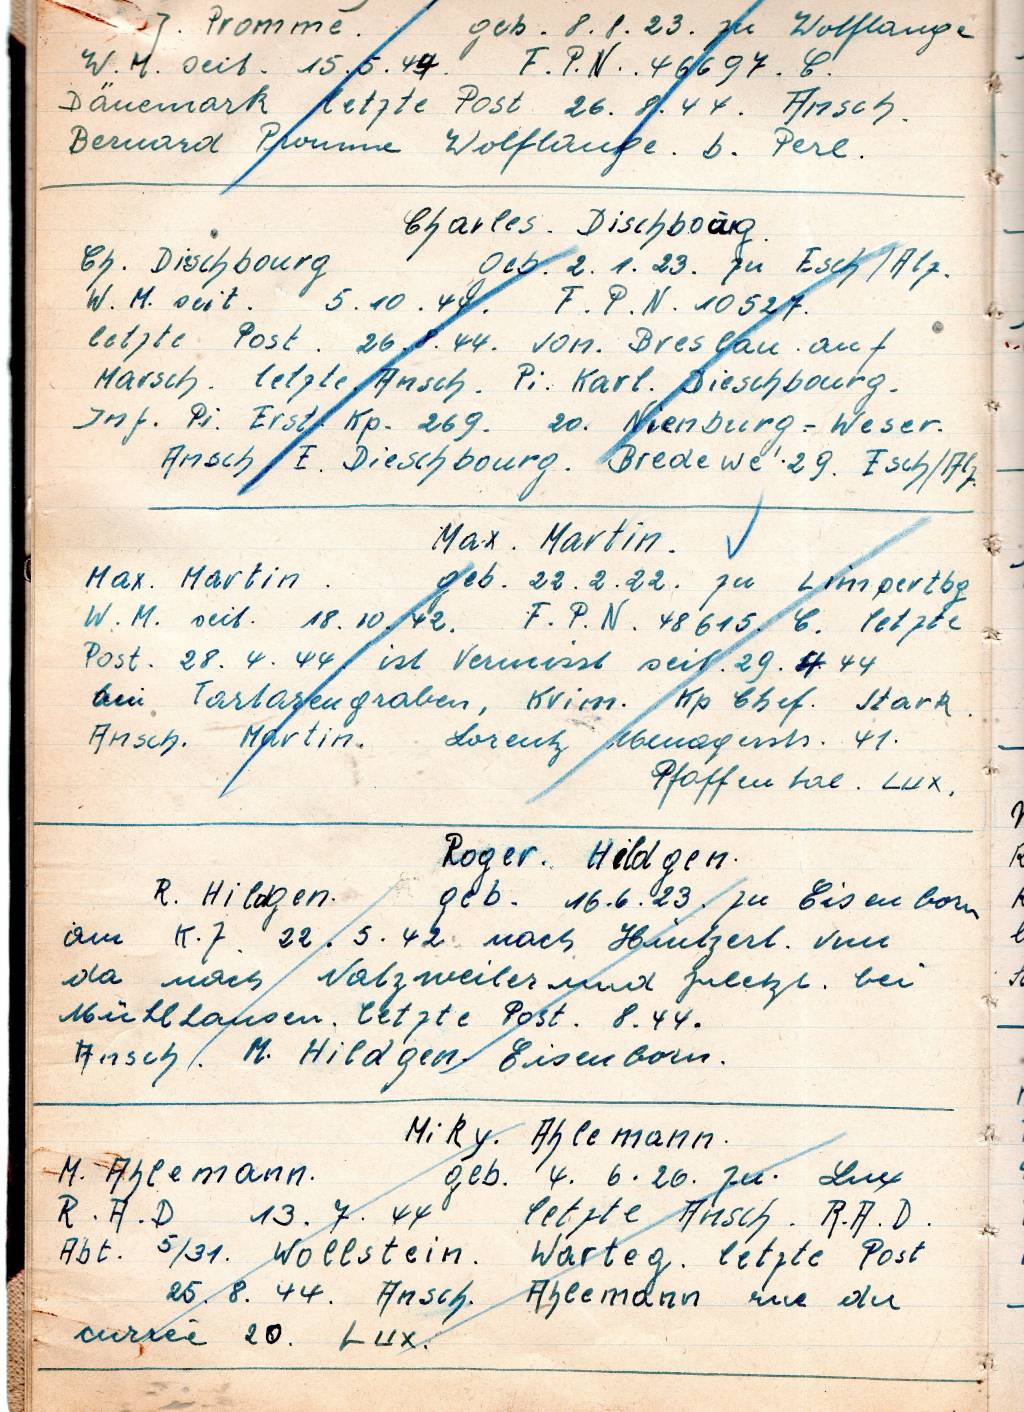 J. Promme. geb. 8.8.23. zu Wolflange
W.M. seit. 15.5.44. F.P.N.. 46697. C.
Dänemark letzte Post 26. 8. 44. Ansch.
Bernard Promme Wolflange. b. Perl.
Charles. Dischbourg.
Ch. Dischbourg geb. 2.1.23. zu Esch/Alz.
W.M. seit. 5.10.44. F.P.N. 10527.
letzte Post. 26.8.44. von. Breslau auf
Marsch. letzte Ansch. Pi. Karl. Dieschbourg.
Inf. Pi. Erst. Kp. 269. 20. Nienburg = Weser.
Ansch E. Dieschbourg. Bredewe' 29. Esch/Alz.
Max. Martin.
Max. Martin. geb. 22.2.22. zu Limpertbg
W.M. seit. 18.10.42. F.P.N. 48615. C. letzte
Post. 28. 4. 44. ist Vermisst seit. 29. 4 44
bei Tartarengraben, Krim. Kp Chef. Stark.
Ansch. Martin. Lorentz Menagerstr. 41.
Pfaffental. Lux.
Roger. Hildgen.
R. Hildgen. geb. 16.6.23. zu Eisenborn
am K.J. 22.5.42 nach Hintzert. von
da nach Natzweiler und zuletzt. bei
Mühlhausen. letzte Post. 8.44.
Ansch. M. Hildgen. Eisenborn.
Miky. Ahlemann.
M. Ahlemann. geb. 4. 6. 26. zu. Lux
R.A.D 13. 7. 44 letzte Ansch. R.A.D.
Abt. 5/31. Wollstein. Warteg. letzte Post
25. 8. 44. Ansch. Ahlemann rue du
curée 20. Lux.